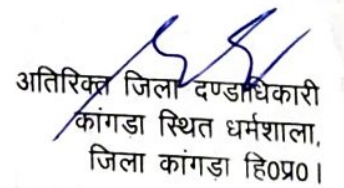 अतिरिक्त जिला दण्डाधिकारी
कांगडा स्थित धर्मशाला,
जिला कांगडा हि०प्र०।